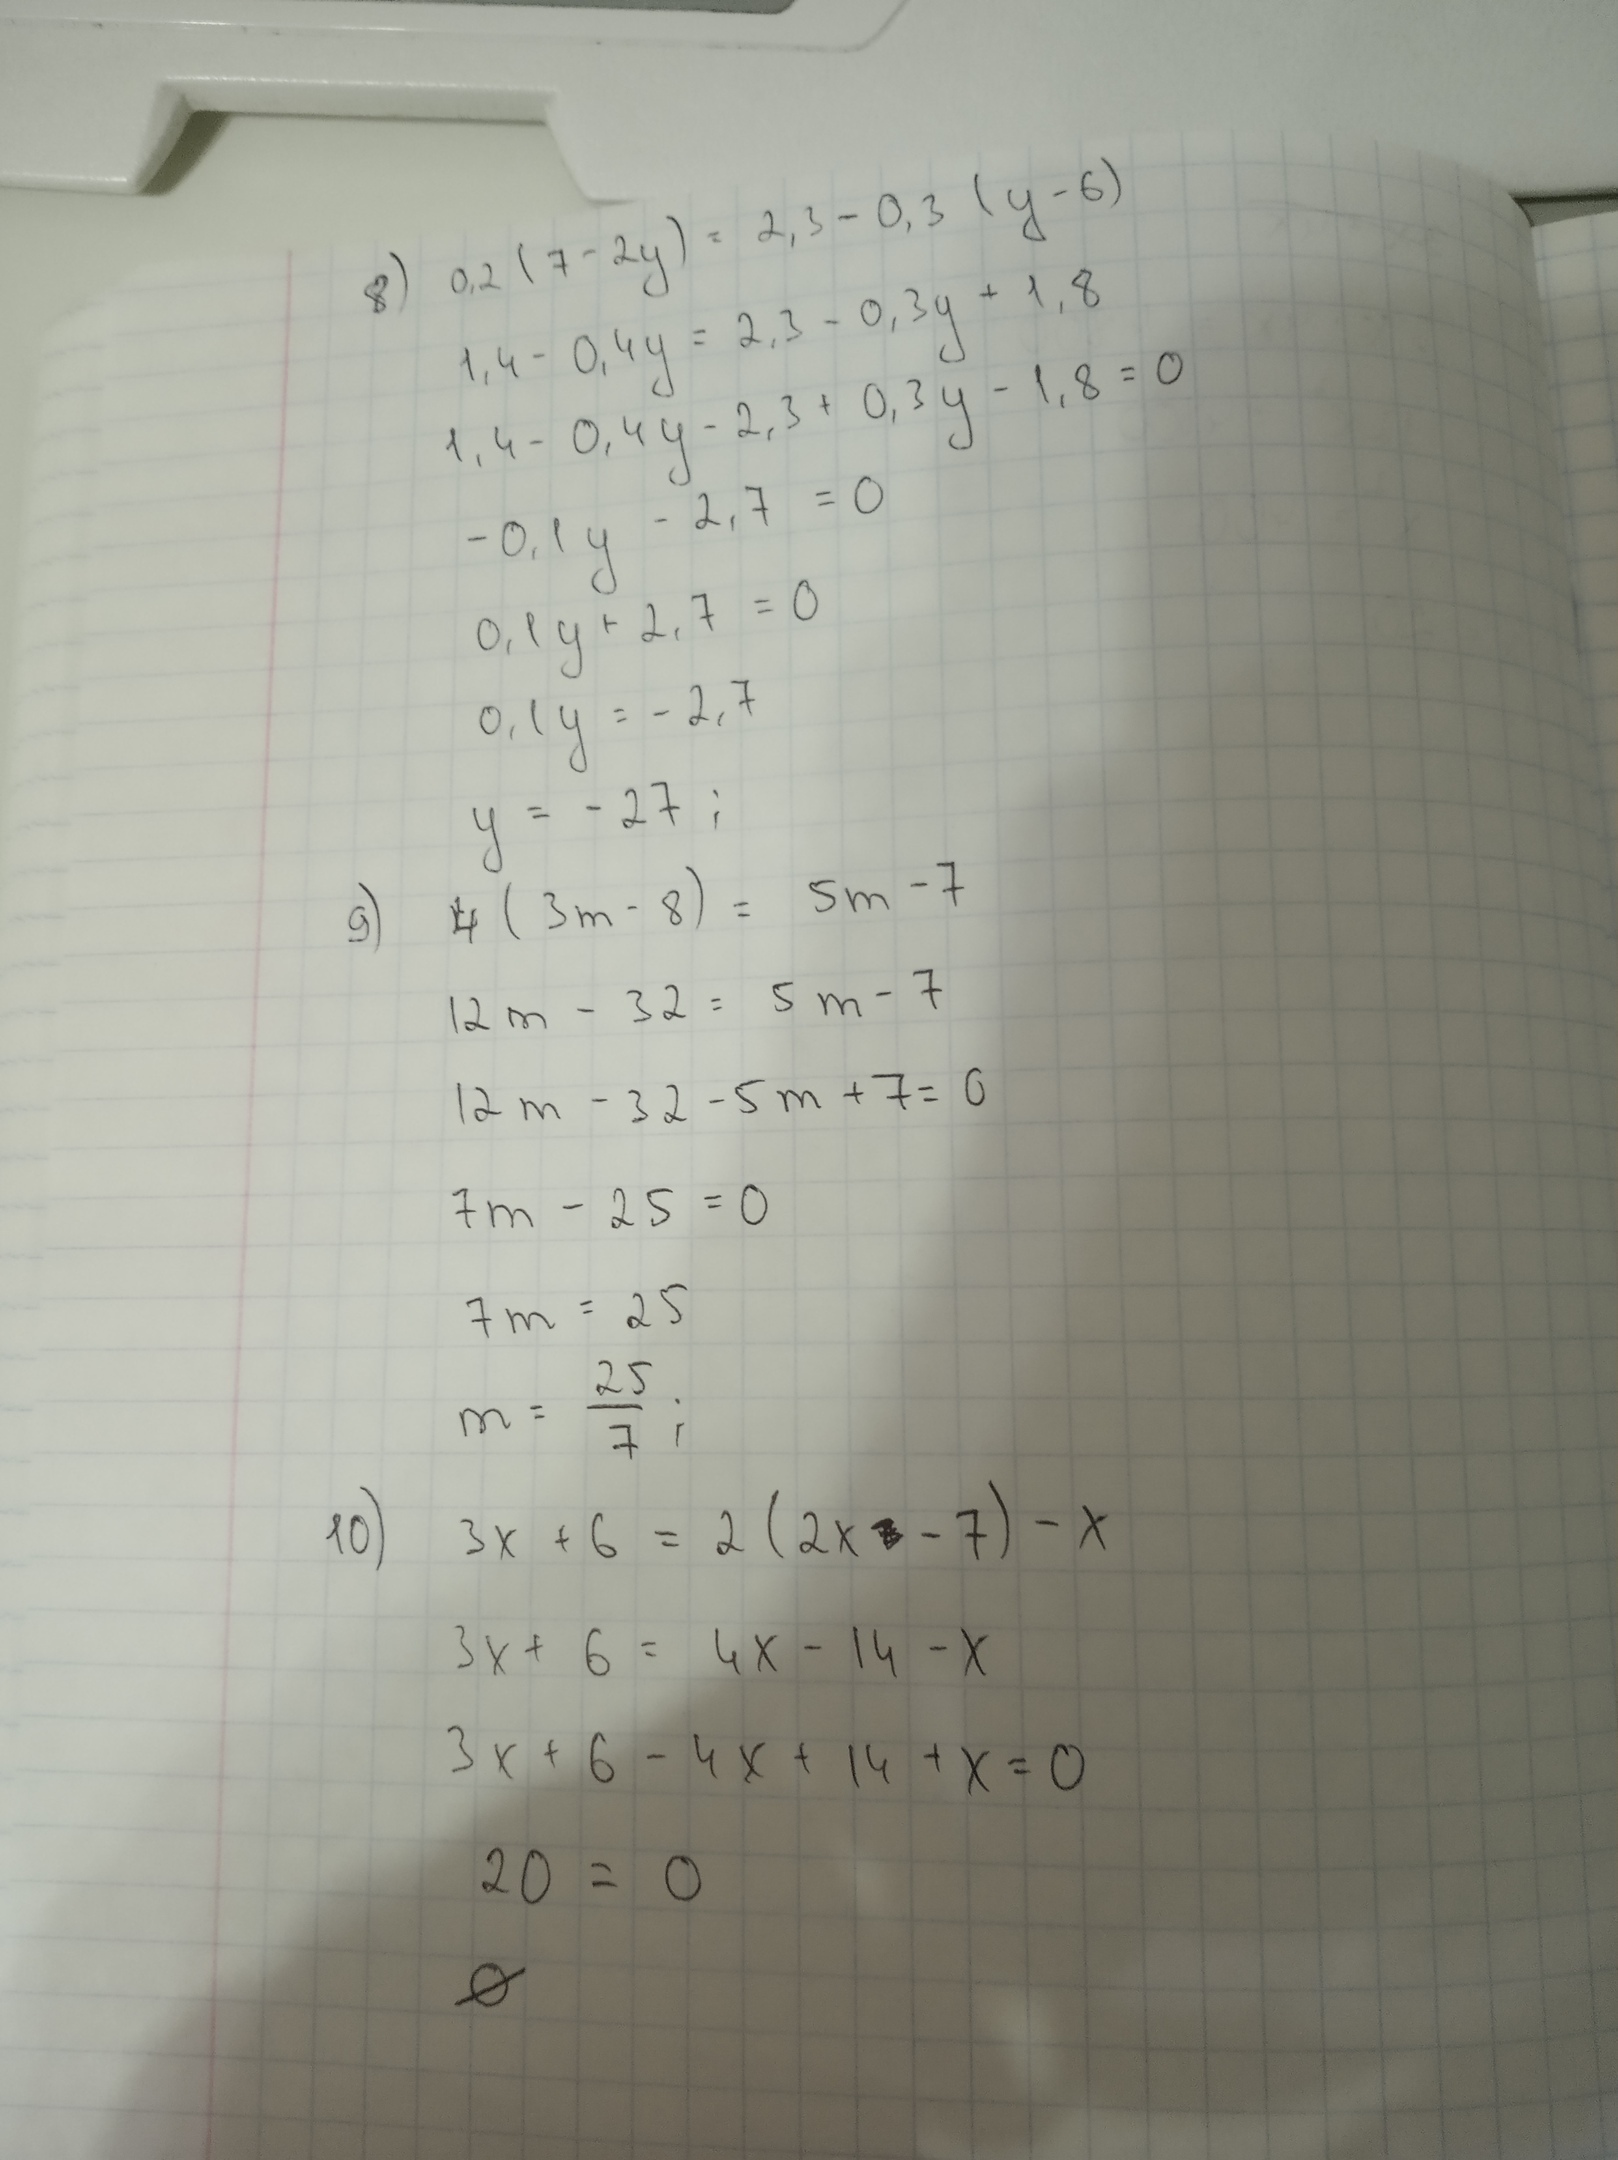 8) 0,2(7-2y) = 2,3-0,3(y-6)
1,4-0,4y = 2,3-0,3y+1,8
1,4-0,4y-2,3+0,3y-1,8=0
-0,1y-2,7=0
0,1y+2,7=0
0,1y=-2,7
y=-27;
9) 4(3m-8) = 5m-7
12m-32=5m-7
12m-32-5m+7=0
7m-25=0
7m=25
m=25/7;
10) 3x+6=2(2x-7)-x
3x+6=4x-14-x
3x+6-4x+14+x=0
20=0
∅